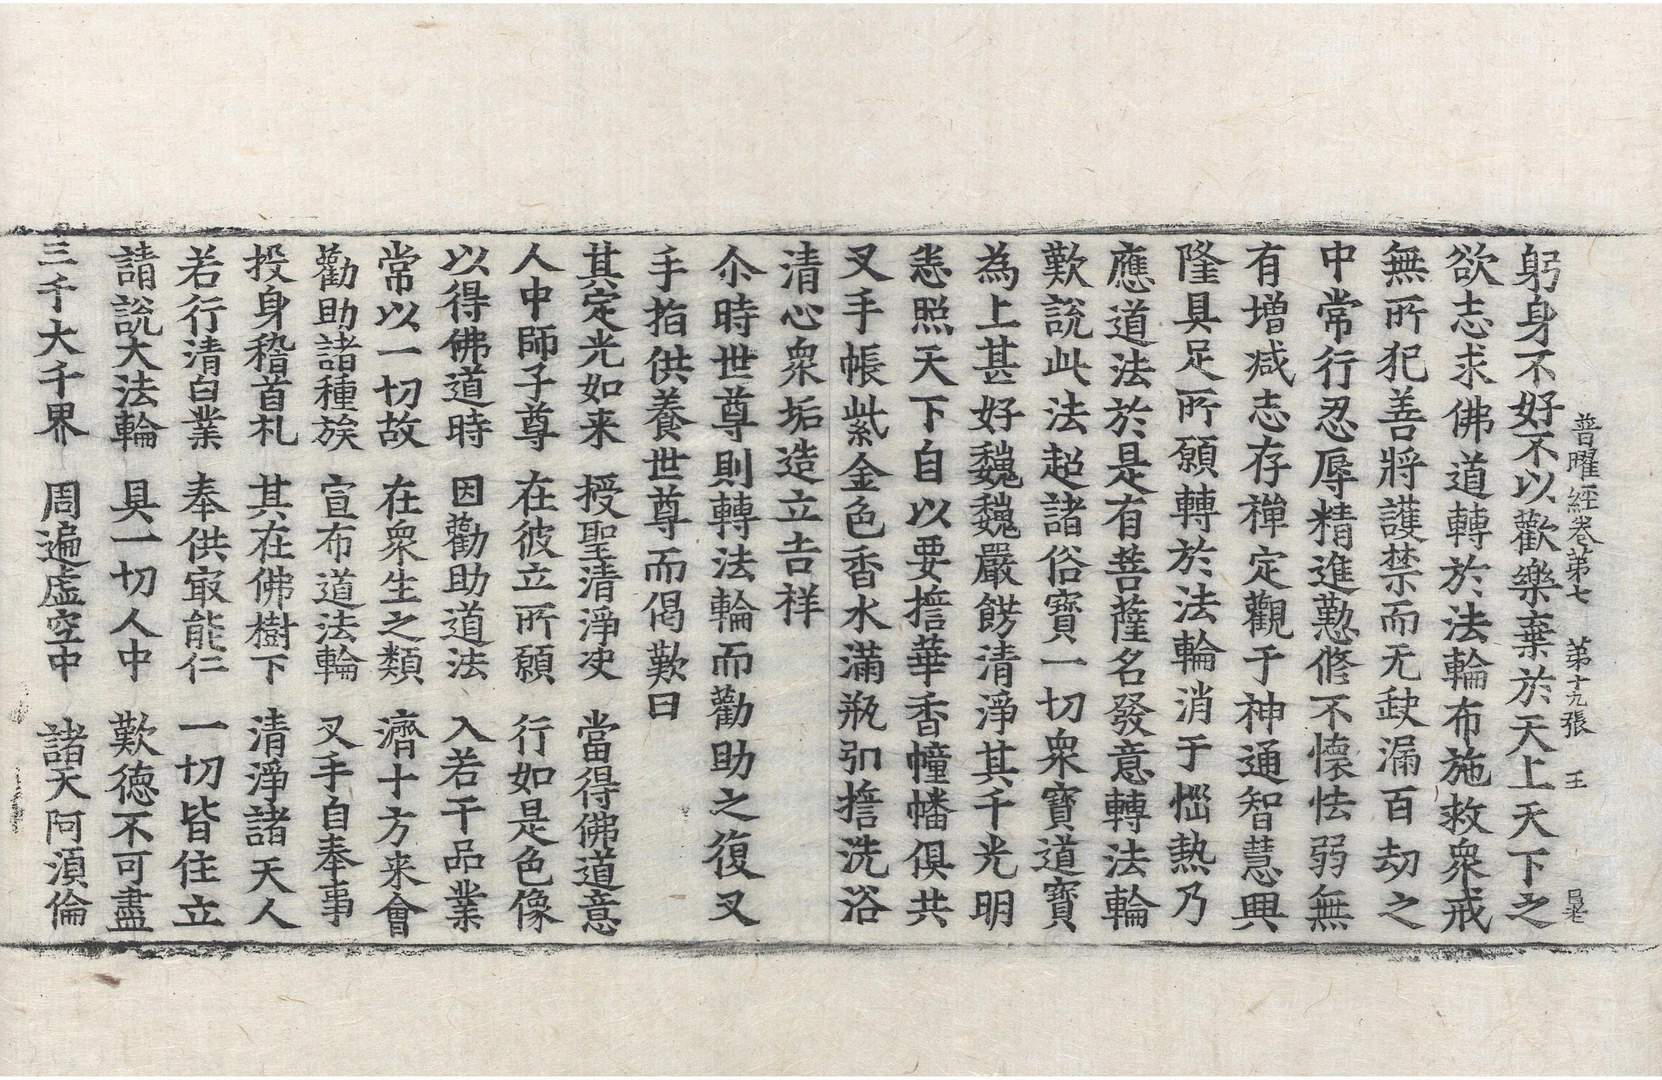 普曜經卷第七 第十九張 王 昌老
躬身不好不以歡樂棄於天上天下之
欲志求佛道轉於法輪布施救衆戒
無所犯善將護禁而无缺漏百劫之
中常行忍辱精進懃修不懷怯弱無
有增减志存禪定觀于神通智慧興
隆具足所願轉於法輪消于惱熱乃
應道法於是有菩薩名發意轉法輪
歎說此法超諸俗寶一切衆寶道寶
為上甚好巍巍嚴餝清淨其千光明
悉照天下自以要擔華香幢幡俱共
叉手帳紫金色香水滿瓶引擔洗浴
清心衆垢造立吉祥
尒時世尊則轉法輪而勸助之復叉
手指供養世尊而偈歎曰
其定光如来 授聖清淨決 當得佛道意
人中師子尊 在彼立所願 行如是色像
以得佛道時 因勸助道法 入若干品業
常以一切故 在衆生之類 濟十方来會
勸助諸種族 宣布道法輪 叉手自奉事
投身稽首札 其在佛樹下 清淨諸天人
若行清白業 奉供㝡能仁 一切皆住立
請說大法輪 具一切人中 歎德不可盡
三千大千界 周遍虛空中 諸天阿湏倫